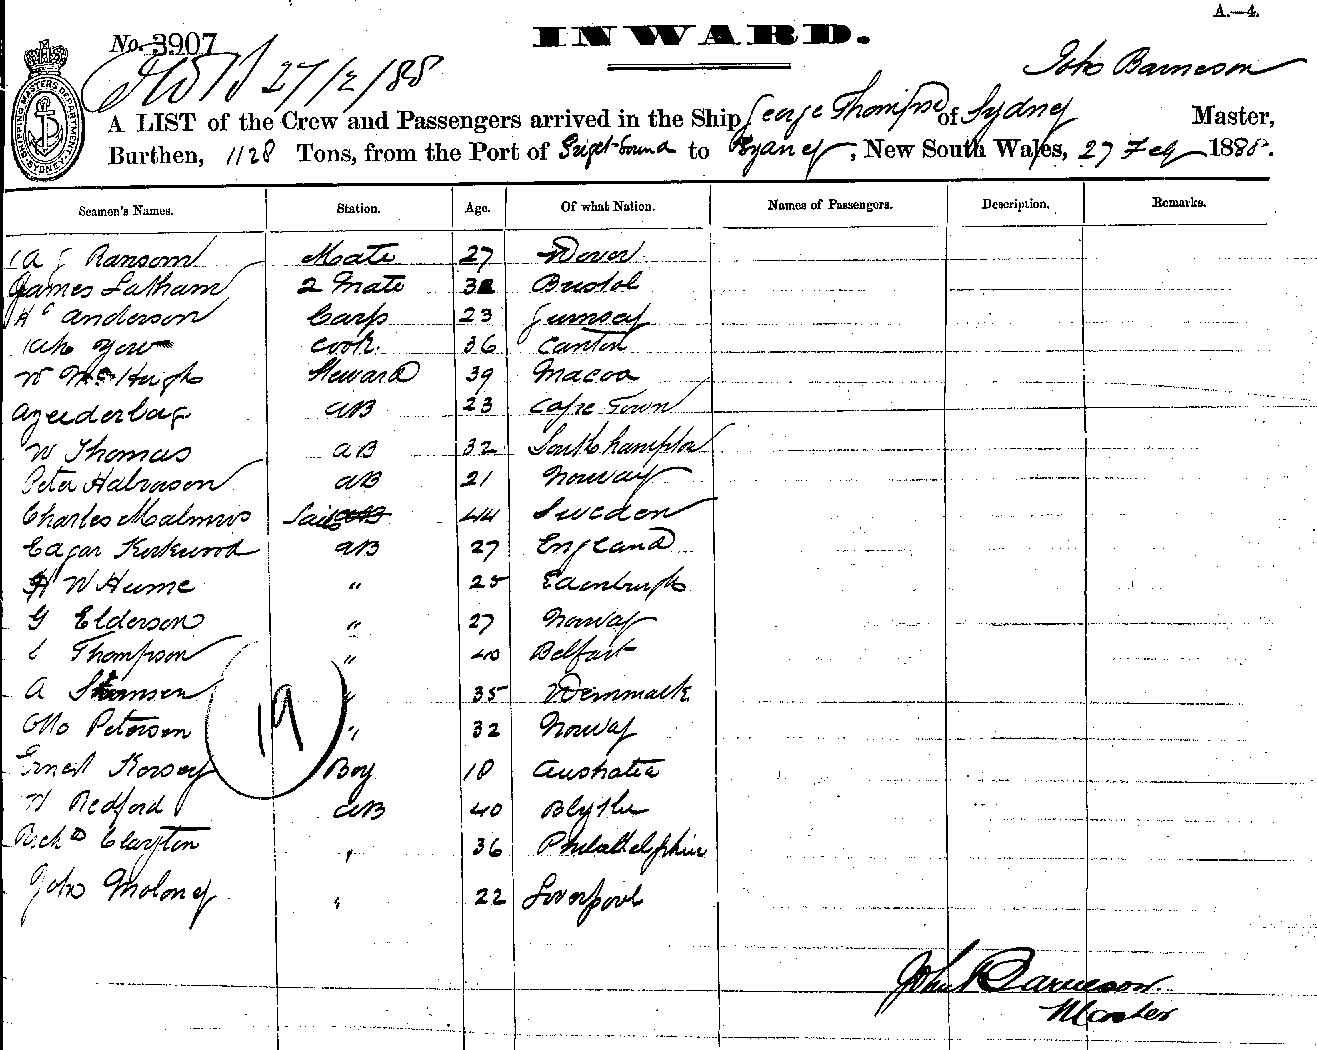 A.—4.
INWARD.
No. 3907
27/2/88
John Barneson
A LIST of the Crew and Passengers arrived in the Ship George Thompson of Sydney Master,
Burthen, 1128 Tons, from the Port of Puget-Sound to Sydney, New South Wales, 27 Feby 1888.
Seamen's Names. Station. Age. Of what Nation. Names of Passengers. Description. Remarks.
A J Ransom Mate 27 Dover
James Latham 2 Mate Bristol
Hc Anderson Carp 23 Gurnsey
Yow Cook 36 Canton
W McHugh Steward 39 Macoa
AB 23 Cape Town
W Thomas AB 32 Southampton
Peter Halvorson AB 21 Norway
Charles Malmros Sail 44 Sweden
Edgar Kirkwood AB 27 England
H W Hume " 25 Edinburgh
G Elderson " 27 Norway
C Thompson " 40 Belfast
A " 35 Denmark
Otto Peterson " 32 Norway
19
Ernest Horsey Boy 18 Australia
W Redford AB 40 Blythe
Richd Clayton " 36 Philadelphia
John Moloney " 22 Liverpool
John Barneson
Master
SHIPPING MASTERS DEPARTMENT N.S.W. SYDNEY